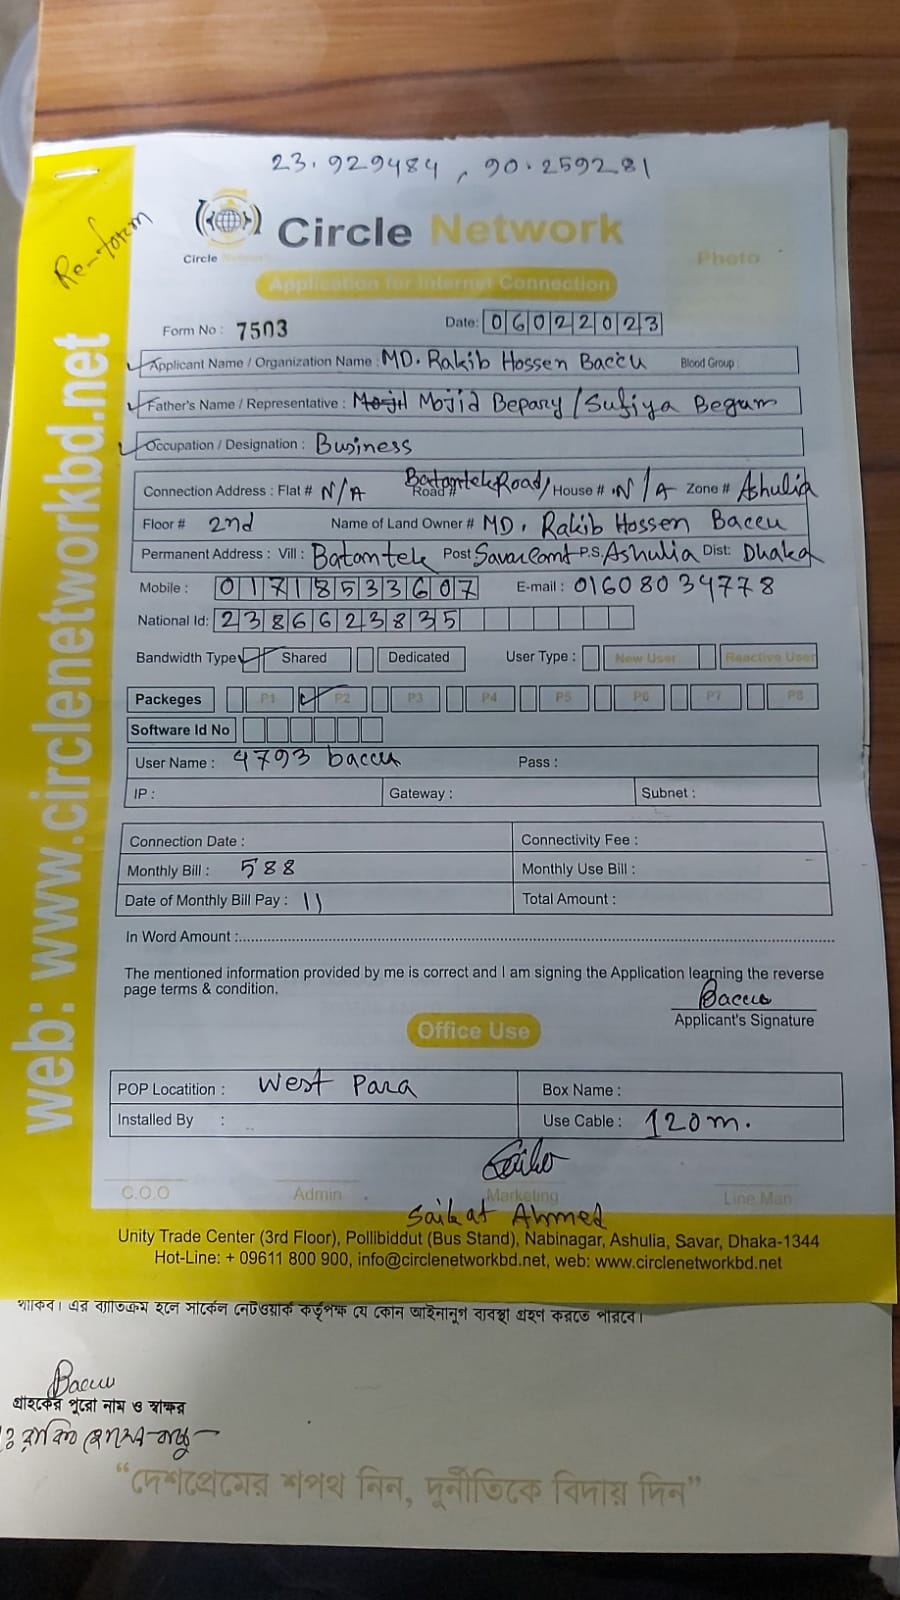 23.929484, 90.259281
Re-form
Circle Network
Circle Network
Photo
Application for Internet Connection
Form No : 7503
Date: 06022023
Applicant Name / Organization Name : MD. Rakib Hossen Baccu Blood Group :
Father's Name / Representative : Mojid Bepary / Sufiya Begum
Occupation / Designation : Business
Connection Address : Flat # N/A Road # Batamtek Road, House # N/A Zone # Ashulia
Floor # 2nd Name of Land Owner # MD. Rakib Hossen Baccu
Permanent Address : Vill : Batamtek Post Savar Cant P.S. Ashulia Dist: Dhaka
Mobile : 01718533607 E-mail : 01608034778
National Id: 2386623835
Bandwidth Type Shared Dedicated User Type : New User Reactive User
Packeges P1 P2 P3 P4 P5 P6 P7 P8
Software Id No
User Name : 4793 baccu Pass :
IP : Gateway : Subnet :
Connection Date : Connectivity Fee :
Monthly Bill : 588 Monthly Use Bill :
Date of Monthly Bill Pay : 11 Total Amount :
In Word Amount :
The mentioned information provided by me is correct and I am signing the Application learning the reverse
page terms & condition.
Baccu
Applicant's Signature
Office Use
POP Locatition : West Para Box Name :
Installed By : Use Cable : 120m.
C.O.O Admin Marketing Line Man
Saikat Ahmed
Unity Trade Center (3rd Floor), Pollibiddut (Bus Stand), Nabinagar, Ashulia, Savar, Dhaka-1344
Hot-Line: + 09611 800 900, info@circlenetworkbd.net, web: www.circlenetworkbd.net
web: www.circlenetworkbd.net
থাকিব। এর ব্যতিক্রম হলে সার্কেল নেটওয়ার্ক কর্তৃপক্ষ যে কোন আইনানুগ ব্যবস্থা গ্রহণ করতে পারবে।
Baccu
গ্রাহকের পুরো নাম ও স্বাক্ষর
“দেশপ্রেমের শপথ নিন, দুর্নীতিকে বিদায় দিন”